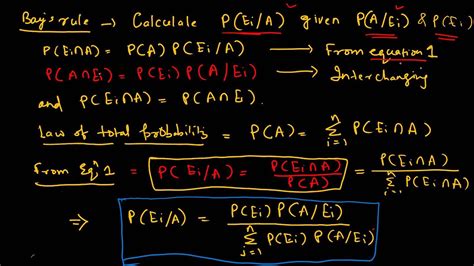 Bay's rule → Calculate P(Ei/A) given P(A/Ei) & P(Ei)
P(Ei∩A) = P(A) P(Ei/A) → From equation 1
P(A∩Ei) = P(Ei) P(A/Ei) → Interchanging
and P(Ei∩A) = P(A∩Ei).
Law of total probability = P(A) = n∑i=1 P(Ei∩A)
From Eqn 1 = P(Ei/A) = P(Ei∩A) / P(A) = P(Ei∩A) / n∑i=1 P(Ei∩A)
⇒ P(Ei/A) = P(Ei) P(A/Ei) / n∑i=1 P(Ei) P(A/Ei)